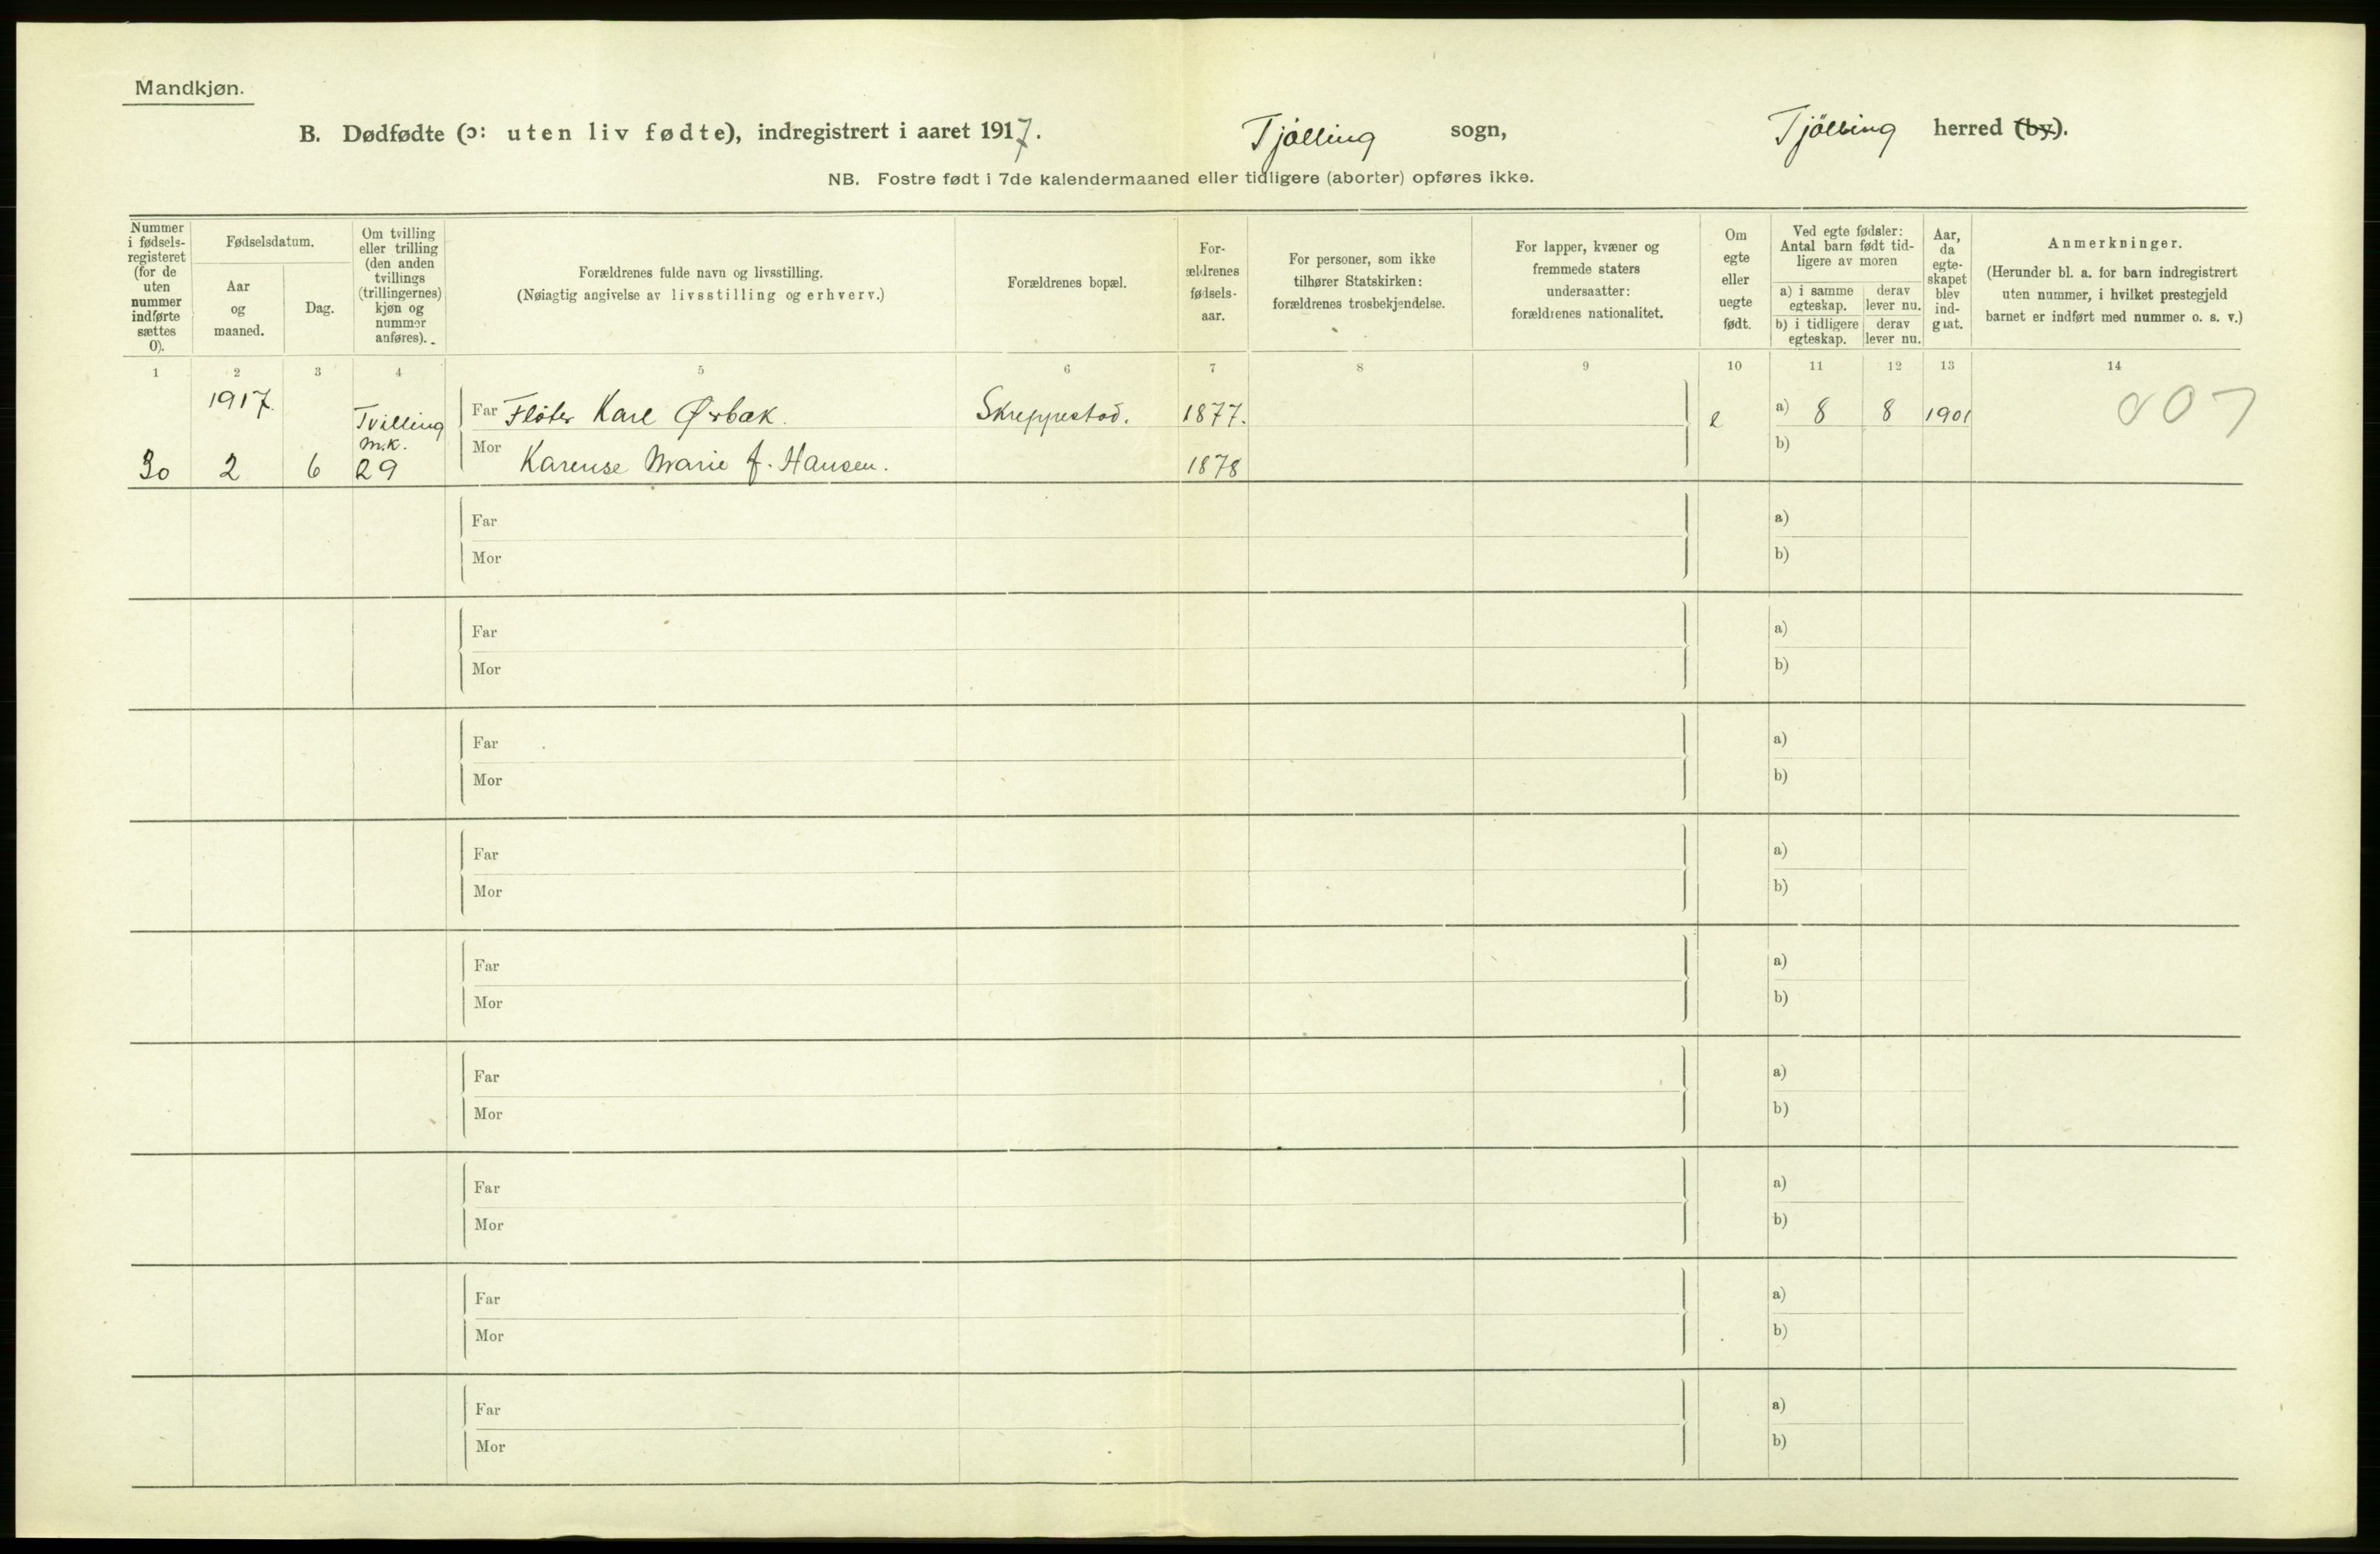 Mandkjøn.
B. Dødfødte (ɔ: uten liv fødte), indregistrert i aaret 1917. Tjølling sogn, Tjølling herred (by).
NB. Fostre født i 7de kalendermaaned eller tidligere (aborter) opføres ikke.
Nummer
i fødsels-
registeret
(for de
uten
nummer
indførte
sættes
0).
Fødselsdatum.
Aar
og
maaned.
Dag.
Om tvilling
eller trilling
(den anden
tvillings
(trillingernes)
kjøn og
nummer
anføres).
Forældrenes fulde navn og livsstilling.
(Nøiagtig angivelse av livsstilling og erhverv.)
Forældrenes bopæl.
For-
ældrenes
fødsels-
aar.
For personer, som ikke
tilhører Statskirken:
forældrenes trosbekjendelse.
For lapper, kvæner og
fremmede staters
undersaatter:
forældrenes nationalitet.
Om
egte
eller
uegte
født.
Ved egte fødsler:
Antal barn født tid-
ligere av moren
a) i samme
egteskap.
derav
lever nu.
b) i tidligere
egteskap.
derav
lever nu.
Aar,
da
egte-
skapet
blev
ind-
gaat.
Anmerkninger.
(Herunder bl. a. for barn indregistrert
uten nummer, i hvilket prestegjeld
barnet er indført med nummer o. s. v.)
1 2 3 4 5 6 7 8 9 10 11 12 13 14
1917.
Tvilling
m.k.
Far Fløter Karl Ørbæk. Skreppestad. 1877. e a) 8 8 1901
30 2 6 29 Mor Karense Marie f. Hansen. 1878 b)
Far a)
Mor b)
Far a)
Mor b)
Far a)
Mor b)
Far a)
Mor b)
Far a)
Mor b)
Far a)
Mor b)
Far a)
Mor b)
Far a)
Mor b)
Far a)
Mor b)